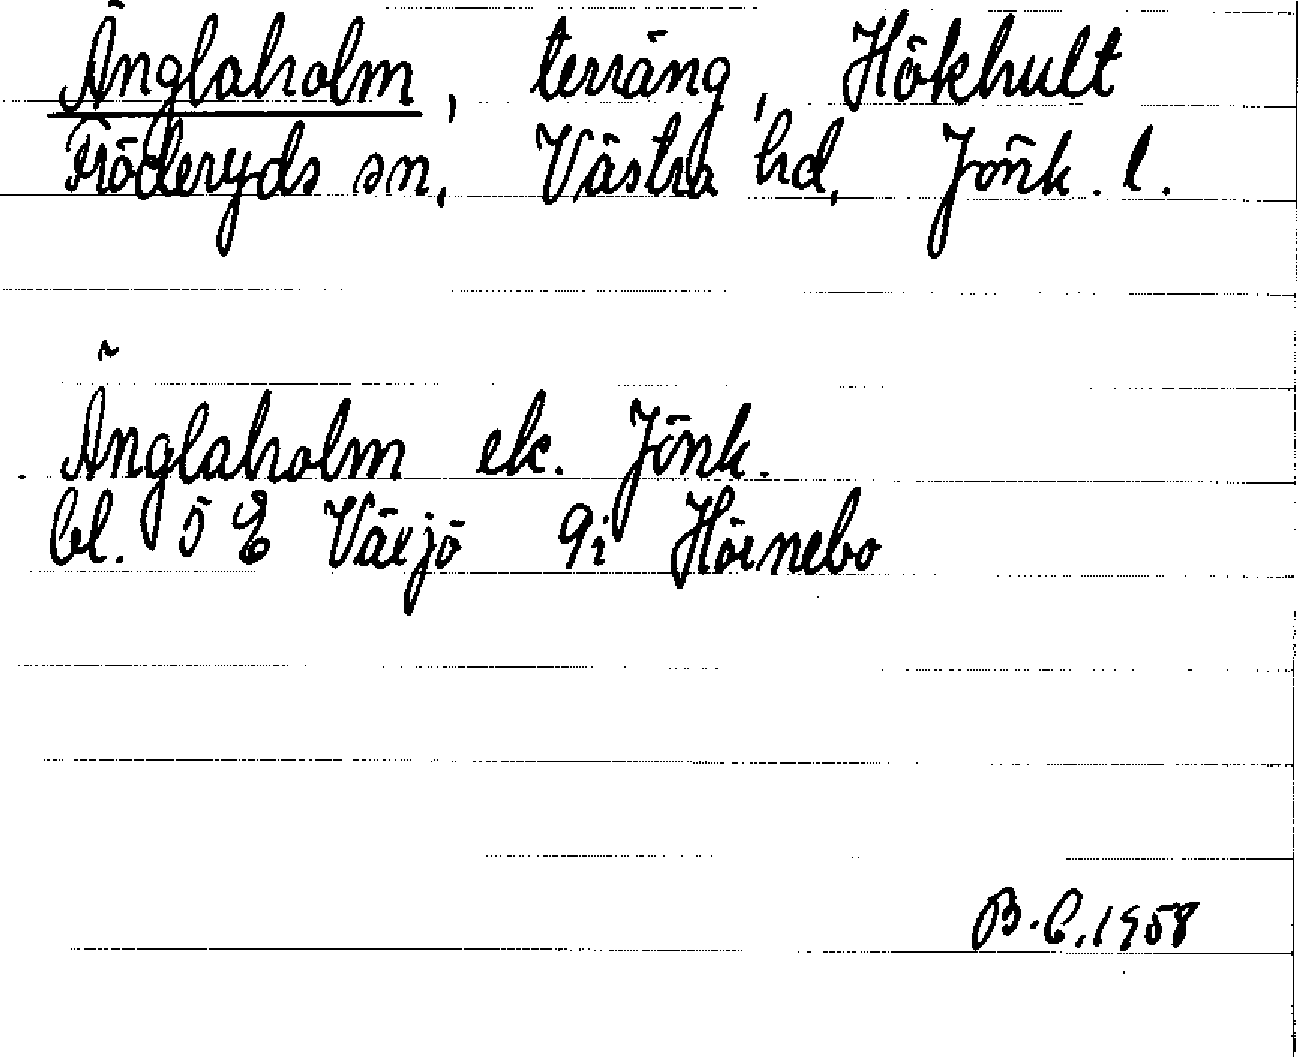 Änglaholm, terräng, Hökhult
Fröderyds sn, Västra hd, Jönk. l.
~
Änglaholm ek. Jönk.
bl. 5 E Växjö 9i Hörnebo
B.E. 1958